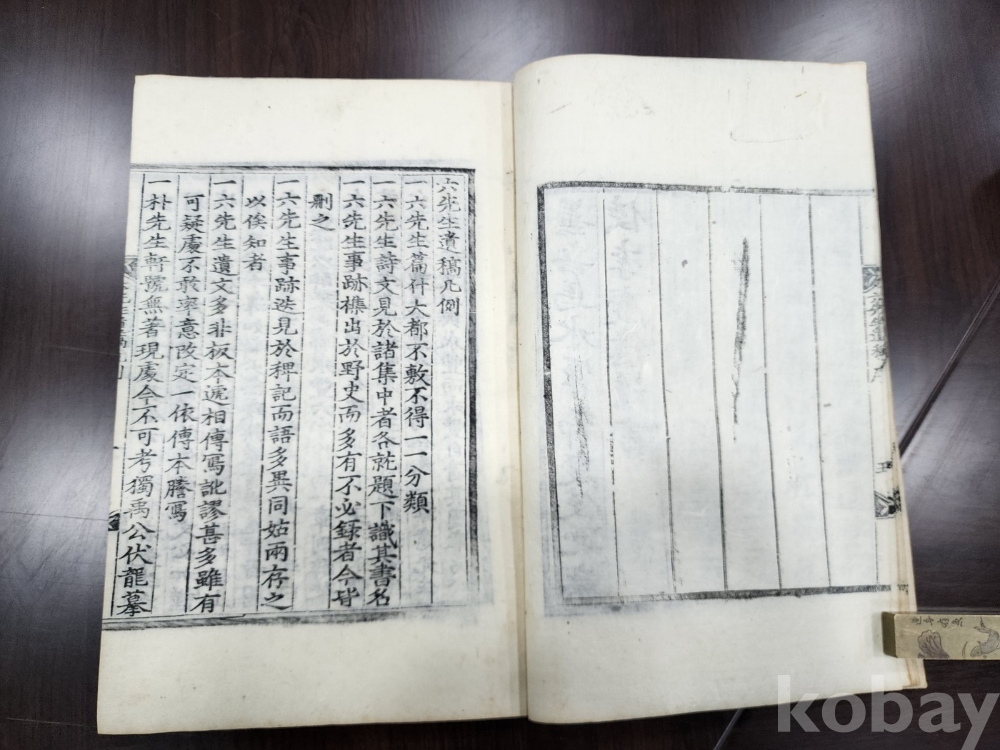 六先生遺稿凡例
一六先生篇什大都不敷不得一一分類
一六先生詩文見於諸集中者各就題下識其書名
一六先生事跡襍出於野史而多有不必録者今皆
刪之
一六先生事跡迭見於稗記而語多異同姑兩存之
以俟知者
一六先生遺文多非板本遞相傳寫訛謬甚多雖有
可疑處不敢率意改定一依傳本謄寫
一朴先生軒號無著現處今不可考獨禹公伏龍墓
kobay